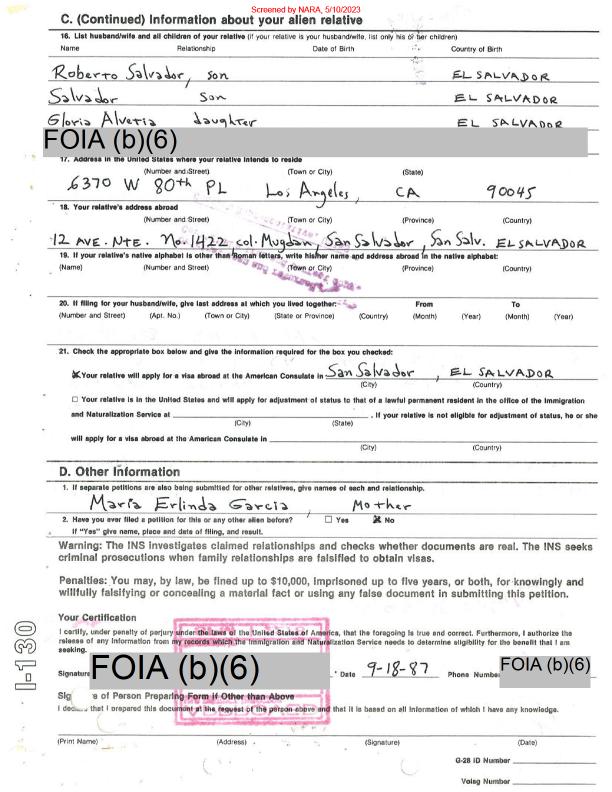 Screened by NARA, 5/10/2023
C. (Continued) Information about your alien relative
16. List husband/wife and all children of your relative (if your relative is your husband/wife, list only his or her children)
Name Relationship Date of Birth Country of Birth
Roberto Salvador, son EL SALVADOR
Salvador son EL SALVADOR
Gloria Alveria daughter EL SALVADOR
FOIA (b)(6)
17. Address in the United States where your relative intends to reside
(Number and Street) (Town or City) (State)
6370 W 80th PL Los Angeles, CA 90045
18. Your relative's address abroad
(Number and Street) (Town or City) (Province) (Country)
12 AVE. NTE. No. 1422, col. Mugdan, San Salvador, San Salv. EL SALVADOR
19. If your relative's native alphabet is other than Roman letters, write his/her name and address abroad in the native alphabet:
(Name) (Number and Street) (Town or City) (Province) (Country)
20. If filing for your husband/wife, give last address at which you lived together: From To
(Number and Street) (Apt. No.) (Town or City) (State or Province) (Country) (Month) (Year) (Month) (Year)
21. Check the appropriate box below and give the information required for the box you checked:
☒ Your relative will apply for a visa abroad at the American Consulate in San Salvador, EL SALVADOR
(City) (Country)
☐ Your relative is in the United States and will apply for adjustment of status to that of a lawful permanent resident in the office of the Immigration
and Naturalization Service at . If your relative is not eligible for adjustment of status, he or she
(City) (State)
will apply for a visa abroad at the American Consulate in
(City) (Country)
D. Other Information
1. If separate petitions are also being submitted for other relatives, give names of each and relationship.
Maria Erlinda Garcia, Mother
2. Have you ever filed a petition for this or any other alien before? ☐ Yes ☒ No
If "Yes" give name, place and date of filing, and result.
Warning: The INS investigates claimed relationships and checks whether documents are real. The INS seeks
criminal prosecutions when family relationships are falsified to obtain visas.
Penalties: You may, by law, be fined up to $10,000, imprisoned up to five years, or both, for knowingly and
willfully falsifying or concealing a material fact or using any false document in submitting this petition.
Your Certification
I certify, under penalty of perjury under the laws of the United States of America, that the foregoing is true and correct. Furthermore, I authorize the
release of any information from my records which the Immigration and Naturalization Service needs to determine eligibility for the benefit that I am
seeking.
Signature FOIA (b)(6) Date 9-18-87 Phone Number FOIA (b)(6)
Sig e of Person Preparing Form if Other than Above
I decl that I prepared this document at the request of the person above and that it is based on all information of which I have any knowledge.
(Print Name) (Address) (Signature) (Date)
G-28 ID Number
Volag Number
I-130